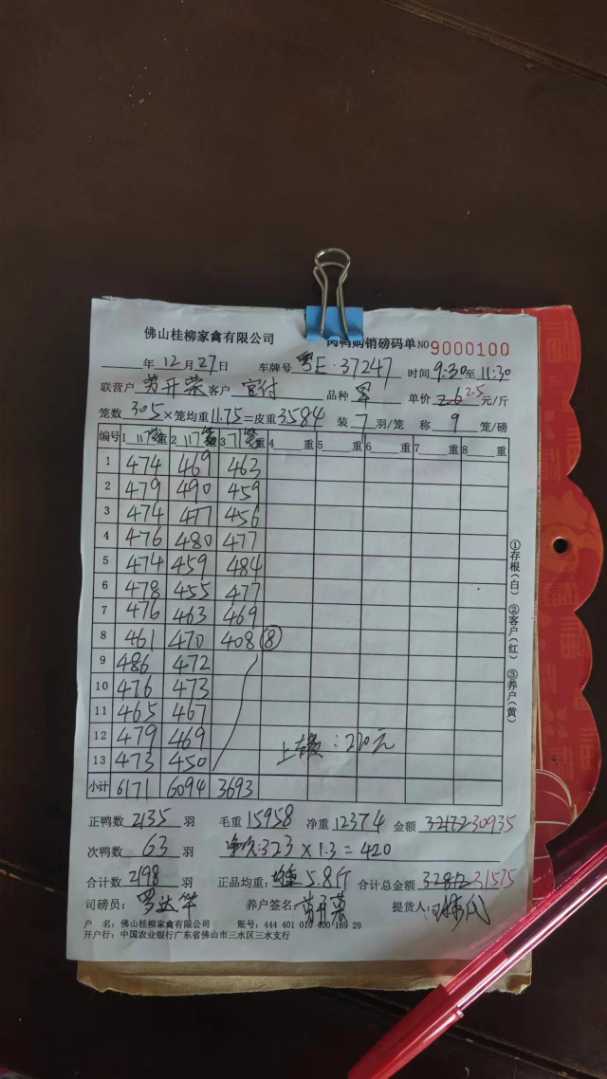 佛山桂柳家禽有限公司 肉鸭购销磅码单 NO 9000100
年 12 月 27 日 车牌号 粤E·37247 时间 9:30 至 11:30
联营户 开荣 客户 宜付 品种 单价 2.6 2.5 元/斤
笼数 305 × 笼均重 11.75 = 皮重 3584 装 7 羽/笼 称 9 笼/磅
编号 1 117 重 2 117 重 3 71 重 4 重 5 重 6 重 7 重 8 重
1 474 469 463
2 479 490 459
3 474 477 456
4 476 480 477
5 474 459 484
6 478 455 477
7 476 463 469
8 461 470 408 ⑧
9 486 472
10 476 473
11 465 467
12 479 469 上 : 210元
13 473 450
小计 6171 6094 3693
①存根(白) ②客户(红) ③养户(黄)
正鸭数 2135 羽 毛重 15958 净重 12374 金额 30935
次鸭数 63 羽 323 × 1.3 = 420
合计数 2198 羽 正品均重: 5.8斤 合计总金额 31575
司磅员: 养户签名: 提货人:
户 名: 佛山桂柳家禽有限公司 账号: 444 401 010 400 189 29
开户行: 中国农业银行广东省佛山市三水区三水支行